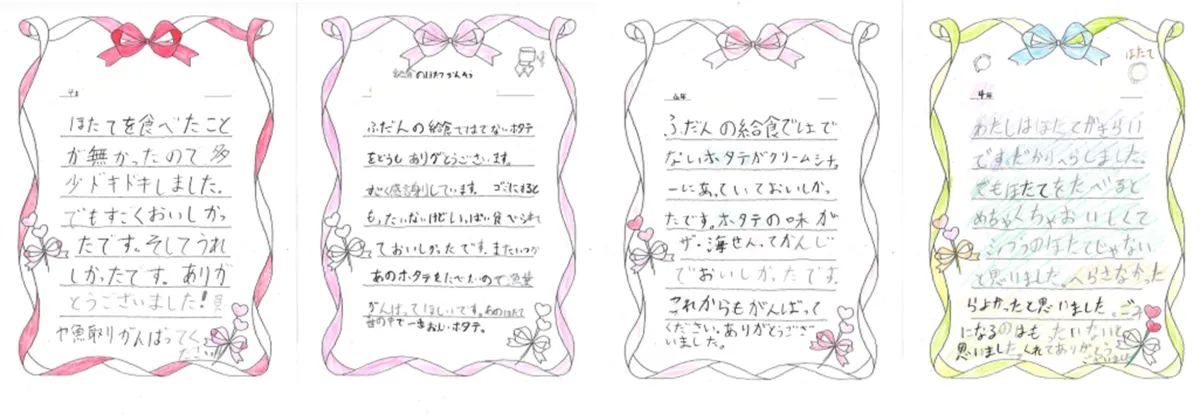 4年
ほたてを食べたこと
が無かったので多
少ドキドキしました。
でもすごくおいしかっ
たです。そしてうれ
しかったです。ありが
とうございました!貝
や魚取りがんばってく
ださい
給食のほたてかんそう
ふだんの給食ではでないホタテ
をどうもありがとうございます。
すごく感謝しています。ゴミにすると
もったいないけどいっぱい食べられ
ておいしかったです。またいつか
あのホタテをたべたいので漁業
がんばってほしいです。あのほたて
世の中で一番おいしいホタテ。
ふだんの給食ではで
ないホタテがクリームシチュ
ーにあっていておいしかっ
たです。ホタテの味が
ザ・海せんってかんじ
でおいしかったです。
これからもがんばって
ください。ありがとうござ
いました。
ほたて
4年
わたしはほたてがきらい
です。だからへらしました。
でもほたてをたべると
めちゃくちゃおいしくて
ふつうのほたてじゃない
と思いました。へらさなかった
らよかったと思いました。ごみ
になるのはもったいないと
思いました。くれてありがとう
ございました